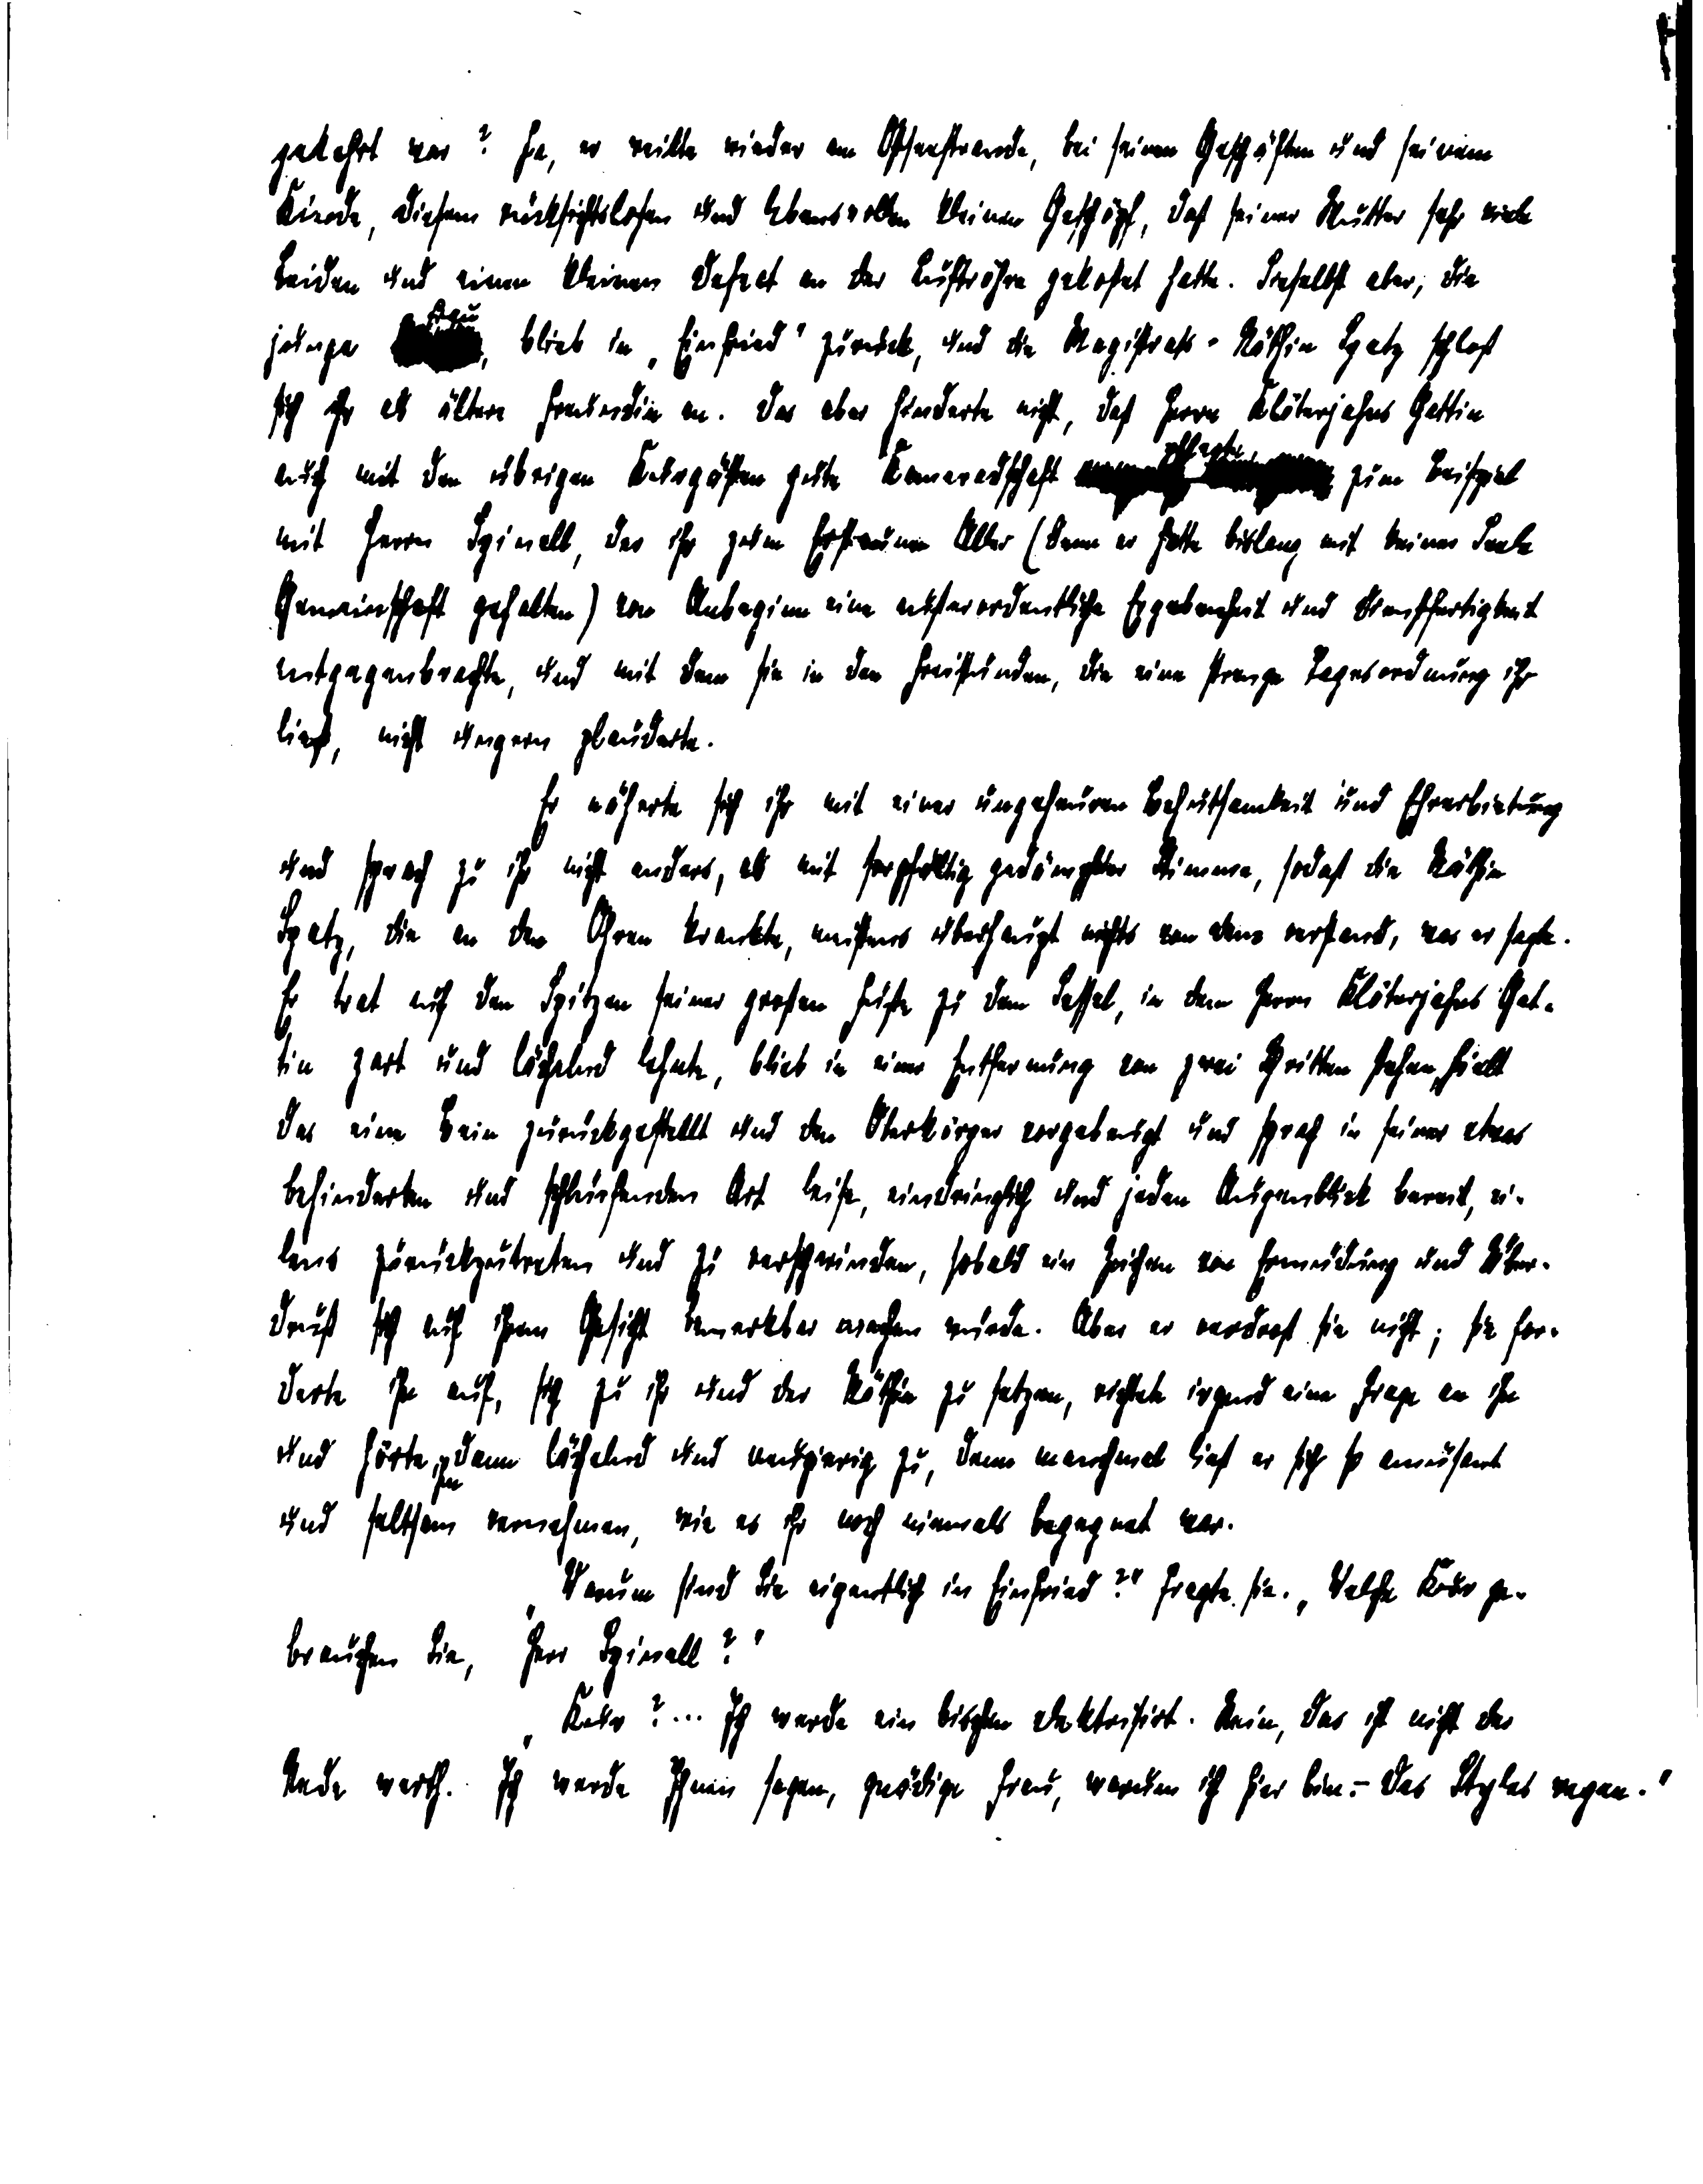 gekehrt war? Ja, er weilte wieder am Ostseestrande, bei seinen Geschäften und seinem
Kinde, diesem rücksichtslosen und lebensvollen kleinen Geschöpf, daß seiner Mutter sehr viele
Leiden und einen kleinen Defect an der Luftröhre gekostet hatte. Sie selbst aber, die
junge Frau, blieb in „Einfried" zurück, und die Magistrats-Räthin Spatz schloß
sich ihr als ältere Freundin an. Das aber hinderte nicht, daß Herrn Klöterjahns Gattin
auch mit den übrigen Kurgästen gute Kameradschaft pflegte, zum Beispiel
mit Herrn Spinell, der ihr zum Erstaunen Aller (denn er hatte bislang mit keiner Seele
Gemeinschaft gehalten) von Anbeginn eine außerordentliche Ergebenheit und Dienstfertigkeit
entgegenbrachte, und mit dem sie in den Freistunden, die eine strenge Tagesordnung ihr
ließ, nicht ungern plauderte.
Er näherte sich ihr mit einer ungeheuren Behutsamkeit und Ehrerbietung
und sprach zu ihr nicht anders, als mit sorgfältig gedämpfter Stimme, sodaß die Räthin
Spatz, die an den Ohren krankte, meistens überhaupt nichts von dem verstand, was er sagte.
Er trat auf den Spitzen seiner großen Füße zu dem Sessel, in dem Herrn Klöterjahns Gat-
tin zart und lächelnd lehnte, blieb in einer Entfernung von zwei Schritten stehen, hielt
das eine Bein zurückgestellt und den Oberkörper vorgebeugt und sprach in seiner etwas
behinderten und schlürfenden Art leise, eindringlich und jeden Augenblick bereit, ei-
lens zurückzutreten und zu verschwinden, sobald ein Zeichen von Ermüdung und Über-
druß sich auf ihrem Gesicht bemerkbar machen würde. Aber er verdroß sie nicht; sie for-
derte ihn auf, sich zu ihr und der Räthin zu setzen, richtete irgend eine Frage an ihn
und hörte ihm dann lächelnd und neugierig zu, denn manchmal ließ er sich so amüsant
und seltsam vernehmen, wie es ihr noch niemals begegnet war.
„Warum sind Sie eigentlich in Einfried?" fragte sie. „Welche Kur ge-
brauchen Sie, Herr Spinell?"
„Kur?... Ich werde ein bischen elektrisirt. Nein, das ist nicht der
Rede werth. Ich werde Ihnen sagen, gnädige Frau, warum ich hier bin:– Des Styles wegen."